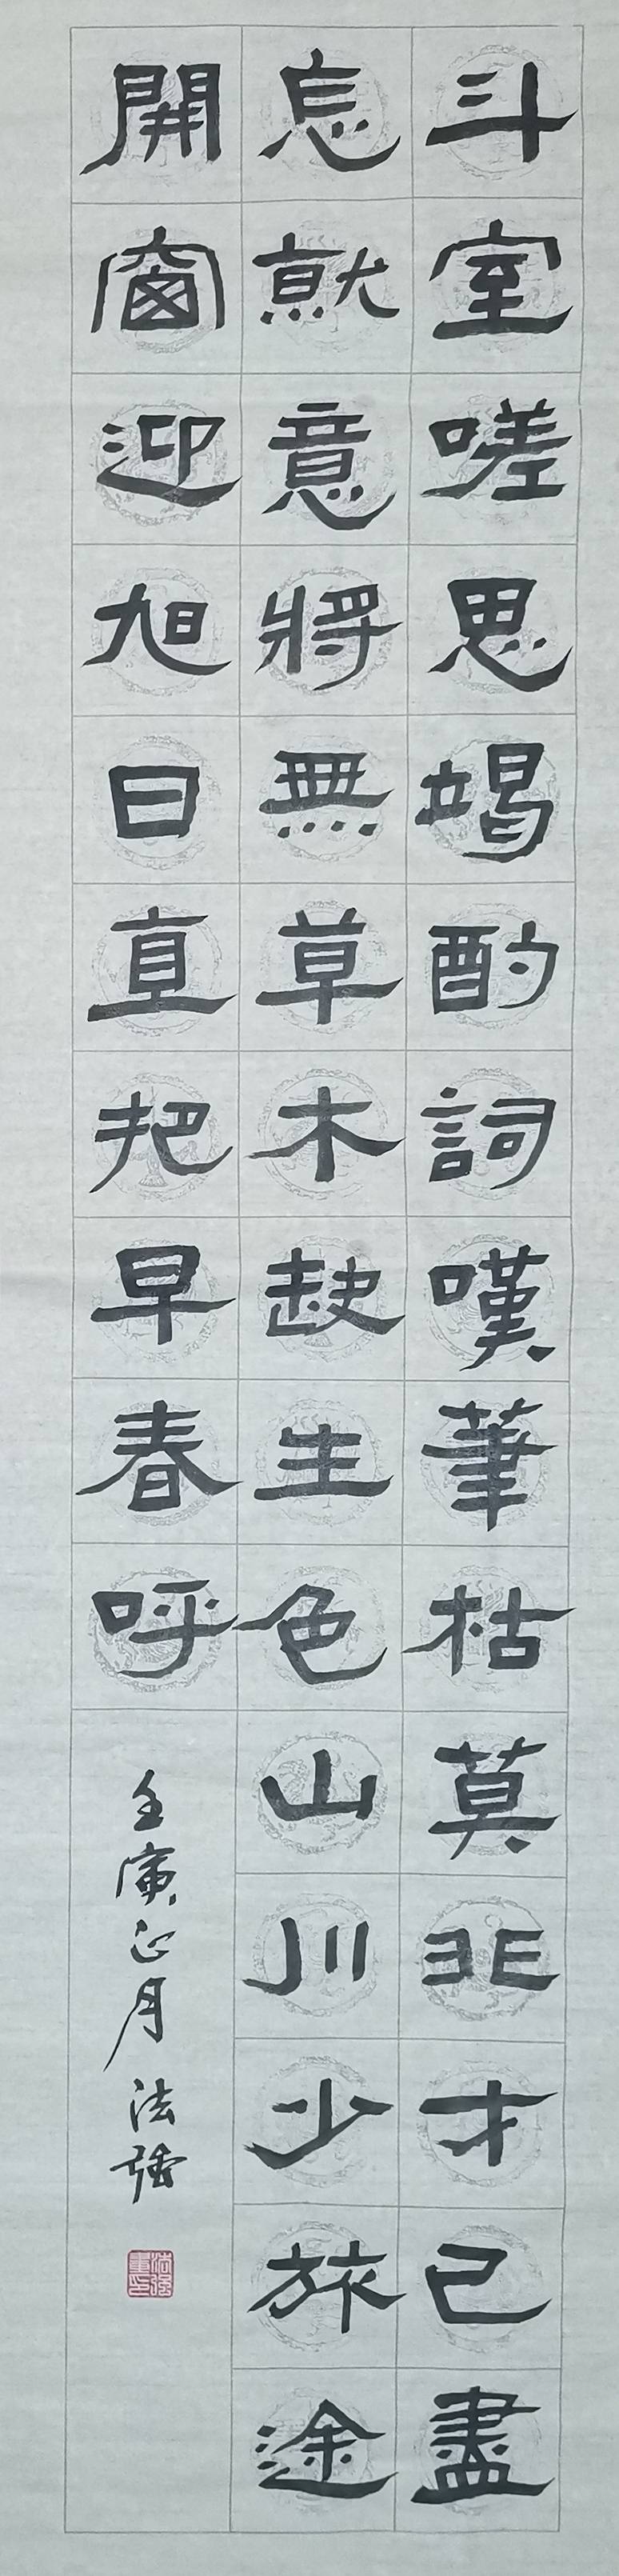 斗室嗟思竭酌詞嘆筆枯莫非才已盡
忘就意將無草木缺生色山川少旅途
開窗迎旭日直把早春呼
壬寅正月 法強